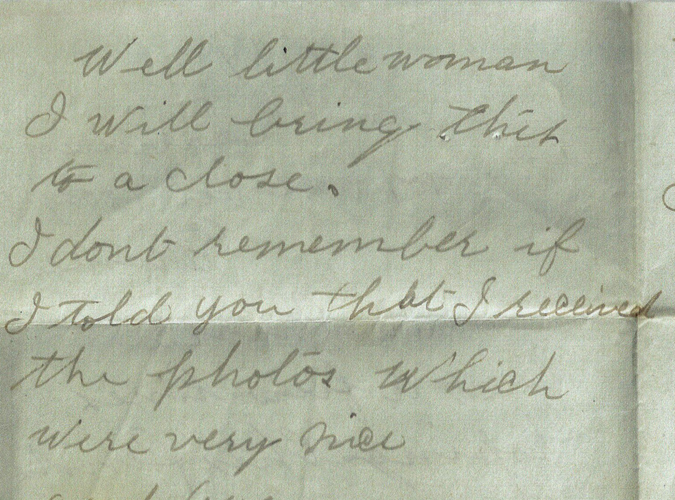 Well little woman
I will bring this
to a close.
I dont remember if
I told you that I received
the photos which
were very nice